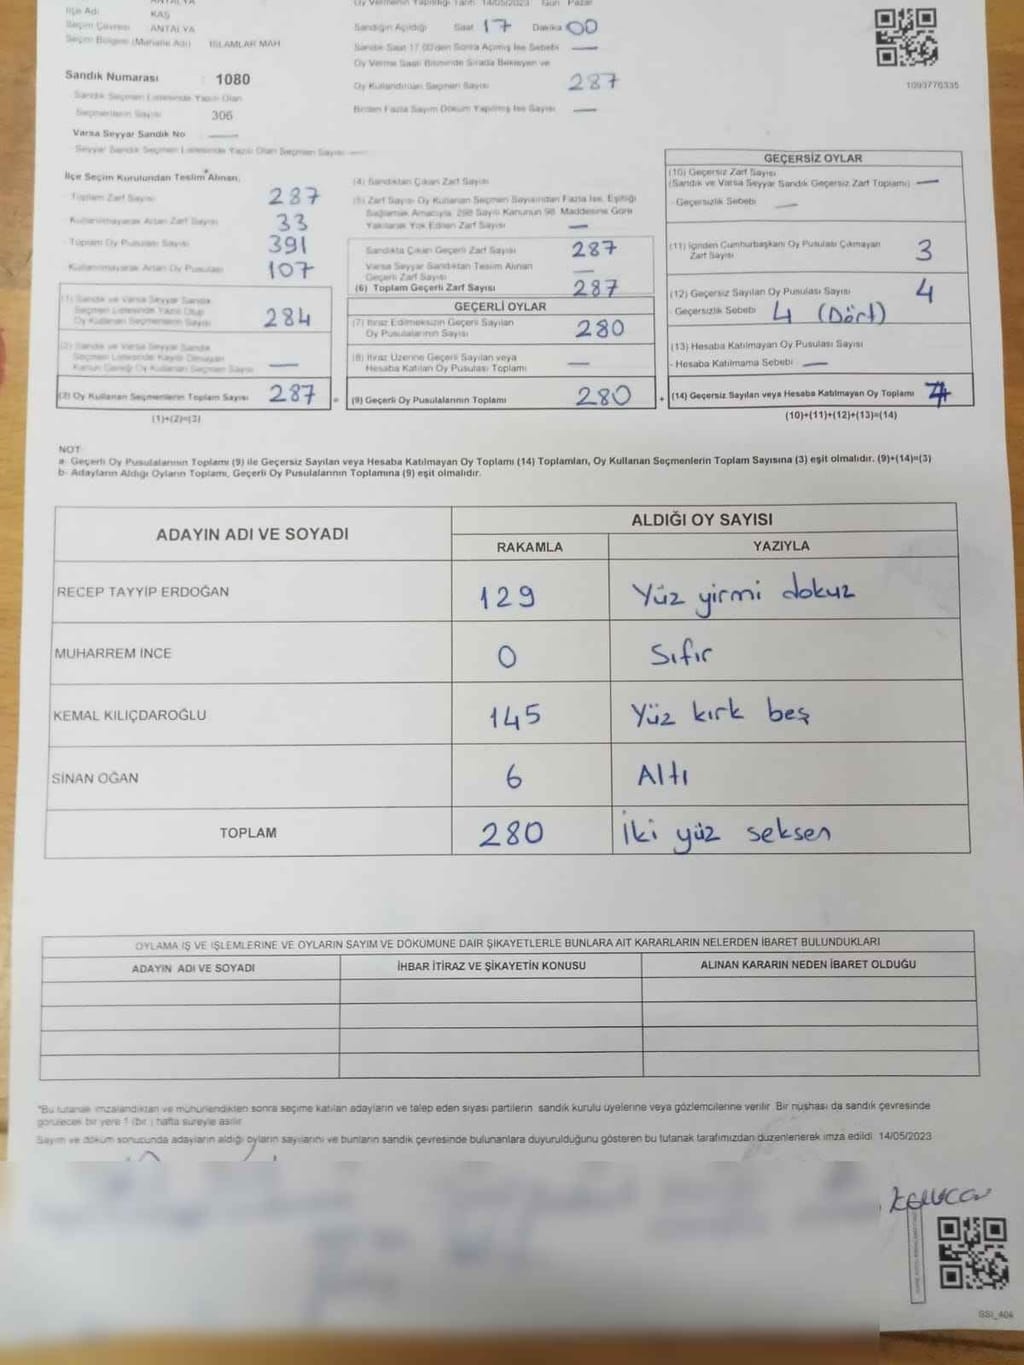 İlçe Adı KAŞ
Seçim Çevresi ANTALYA
Seçim Bölgesi (Mahalle Adı) İSLAMLAR MAH
Sandık Numarası 1080
Sandık Seçmen Listesinde Yazılı Olan
Seçmenlerin Sayısı 306
Varsa Seyyar Sandık No —
Seyyar Sandık Seçmen Listesinde Yazılı Olan Seçmen Sayısı —
Oy Vermenin Yapıldığı Tarih 14/05/2023 Gün Pazar
Sandığın Açıldığı Saat 17 Dakika 00
Sandık Saat 17.00'den Sonra Açılmış İse Sebebi —
Oy Verme Saati Bitiminde Sırada Bekleyen ve
Oy Kullandırılan Seçmen Sayısı 287
Birden Fazla Sayım Döküm Yapılmış İse Sayısı —
1093776335
İlçe Seçim Kurulundan Teslim Alınan,
Toplam Zarf Sayısı 287
Kullanılmayarak Artan Zarf Sayısı 33
Toplam Oy Pusulası Sayısı 391
Kullanılmayarak Artan Oy Pusulası 107
(1) Sandık ve Varsa Seyyar Sandık
Seçmen Listesinde Yazılı Olup
Oy Kullanan Seçmenlerin Sayısı 284
(2) Sandık ve Varsa Seyyar Sandık
Seçmen Listesinde Kayıtlı Olmayan
Kanun Gereği Oy Kullanan Seçmen Sayısı —
(3) Oy Kullanan Seçmenlerin Toplam Sayısı 287
(1)+(2)=(3)
(4) Sandıktan Çıkan Zarf Sayısı
(5) Zarf Sayısı Oy Kullanan Seçmen Sayısından Fazla İse, Eşitliği
Sağlamak Amacıyla, 298 Sayılı Kanunun 98. Maddesine Göre
Yakılarak Yok Edilen Zarf Sayısı —
Sandıkta Çıkan Geçerli Zarf Sayısı 287
Varsa Seyyar Sandıktan Teslim Alınan
Geçerli Zarf Sayısı —
(6) Toplam Geçerli Zarf Sayısı 287
GEÇERLİ OYLAR
(7) İtiraz Edilmeksizin Geçerli Sayılan
Oy Pusulalarının Sayısı 280
(8) İtiraz Üzerine Geçerli Sayılan veya
Hesaba Katılan Oy Pusulası Toplamı —
= (9) Geçerli Oy Pusulalarının Toplamı 280
GEÇERSİZ OYLAR
(10) Geçersiz Zarf Sayısı
(Sandık ve Varsa Seyyar Sandık Geçersiz Zarf Toplamı) —
- Geçersizlik Sebebi —
(11) İçinden Cumhurbaşkanı Oy Pusulası Çıkmayan
Zarf Sayısı 3
(12) Geçersiz Sayılan Oy Pusulası Sayısı 4
- Geçersizlik Sebebi 4 (Dört)
(13) Hesaba Katılmayan Oy Pusulası Sayısı
- Hesaba Katılmama Sebebi —
+ (14) Geçersiz Sayılan veya Hesaba Katılmayan Oy Toplamı
(10)+(11)+(12)+(13)=(14)
NOT:
a- Geçerli Oy Pusulalarının Toplamı (9) ile Geçersiz Sayılan veya Hesaba Katılmayan Oy Toplamı (14) Toplamları, Oy Kullanan Seçmenlerin Toplam Sayısına (3) eşit olmalıdır. (9)+(14)=(3)
b- Adayların Aldığı Oyların Toplamı, Geçerli Oy Pusulalarının Toplamına (9) eşit olmalıdır.
ADAYIN ADI VE SOYADI ALDIĞI OY SAYISI
RAKAMLA YAZIYLA
RECEP TAYYİP ERDOĞAN 129 Yüz yirmi dokuz
MUHARREM İNCE 0 Sıfır
KEMAL KILIÇDAROĞLU 145 Yüz kırk beş
SİNAN OĞAN 6 Altı
TOPLAM 280 İki yüz seksen
OYLAMA İŞ VE İŞLEMLERİNE VE OYLARIN SAYIM VE DÖKÜMÜNE DAİR ŞİKAYETLERLE BUNLARA AİT KARARLARIN NELERDEN İBARET BULUNDUKLARI
ADAYIN ADI VE SOYADI İHBAR İTİRAZ VE ŞİKAYETİN KONUSU ALINAN KARARIN NEDEN İBARET OLDUĞU
*Bu tutanak imzalandıktan ve mühürlendikten sonra seçime katılan adayların ve talep eden siyasi partilerin sandık kurulu üyelerine veya gözlemcilerine verilir. Bir nüshası da sandık çevresinde
görülecek bir yere 1 (bir) hafta süreyle asılır.
Sayım ve döküm sonucunda adayların aldığı oyların sayılarını ve bunların sandık çevresinde bulunanlara duyurulduğunu gösteren bu tutanak tarafımızdan düzenlenerek imza edildi. 14/05/2023